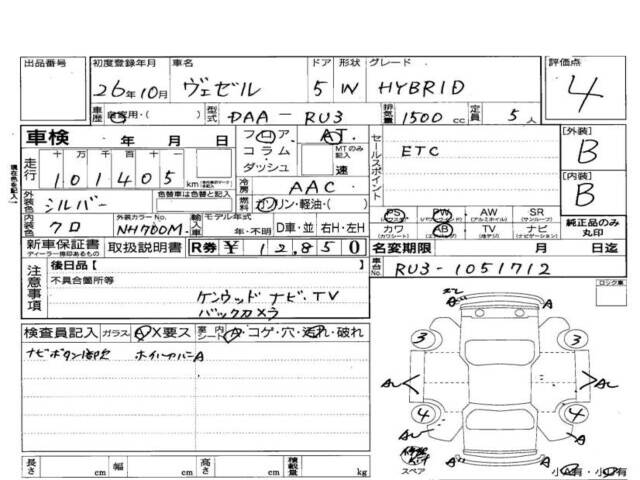 出品番号 初度登録年月 車名 ドア 形状 グレード 評価点
26年10月 ヴェゼル 5 W HYBRID 4
車歴 自家用・( ) 型式 DAA-RU3 排気量 1500 cc 定員 5人
車検 年 月 日 フロア AT
コラム MTのみ記入
ダッシュ 速
セールスポイント ETC
[外装] B
[内装] B
走行 十万千百十一
101405 km
冷房 AAC
外装色 シルバー 色替車は色替と記入
燃料 ガソリン・軽油・( )
内装色 クロ 外装カラーNo. NH700M 輸入車 モデル年式 年・不明 D車・並 右H・左H
PS PW AW SR
(パワステ) (パワーウィンドウ) (アルミホイル) (サンルーフ)
カワ AB TV ナビ
(カワシート) (エアバッグ) (地デジ) (ナビゲーション)
純正品のみ丸印
新車保証書 取扱説明書 R券 ¥ 12,850
ディーラー捺印あるもの
名変期限 月 日迄
車台No. RU3-1051712
注意事項 後日品[ ]
不具合箇所等
ケンウッド ナビ・TV
バックカメラ
ロック車
検査員記入 ガラス A X要ス 室内 シート A・コゲ・穴・汚れ・破れ
ナビボタン
A A
3 3
4 4
A A
スペア
長さ cm 幅 cm 高さ cm 積載量 kg